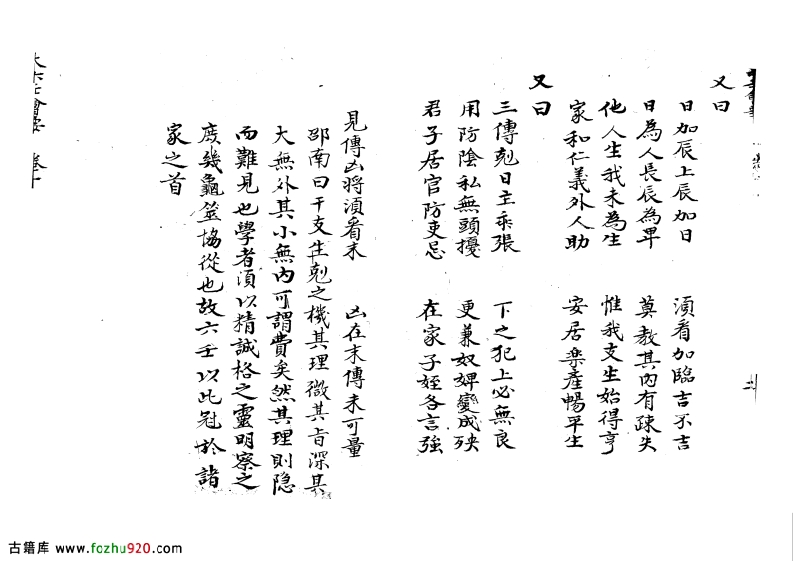 又曰
日加辰上辰加日 須看加臨吉不吉
日為人長辰為卑 莫教其內有疎失
他人生我未為生 惟我支生始得亨
家和仁義外人助 安居樂產暢平生
又曰
三傳剋日主乖張 下之犯上必無良
用防陰私無頭擾 更兼奴婢變成殃
君子居官防吏忌 在家子姪各言強
見傳凶將須看末 凶在末傳未可量
邵南曰干支生剋之機其理微其旨深其
大無外其小無內可謂費矣然其理則隱
而難見也學者須以精誠格之靈明察之
庶幾龜筮協從也故六壬以此冠於諸
家之首
大六壬會要 卷十
古籍库 www.fozhu920.com